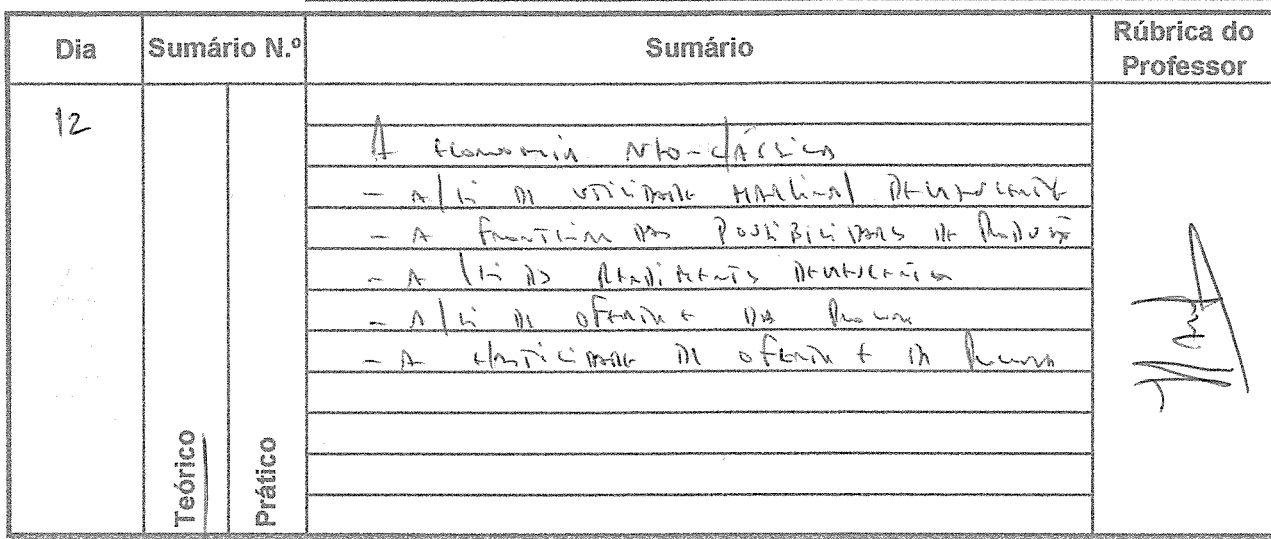 Dia Sumário N.º Sumário Rúbrica do Professor
12
A economia neo-clássica
- A lei da utilidade marginal decrescente
- A fronteira das possibilidades de produção
- A lei dos rendimentos decrescentes
- A lei da oferta e da procura
- A elasticidade da oferta e da procura
Teórico
Prático